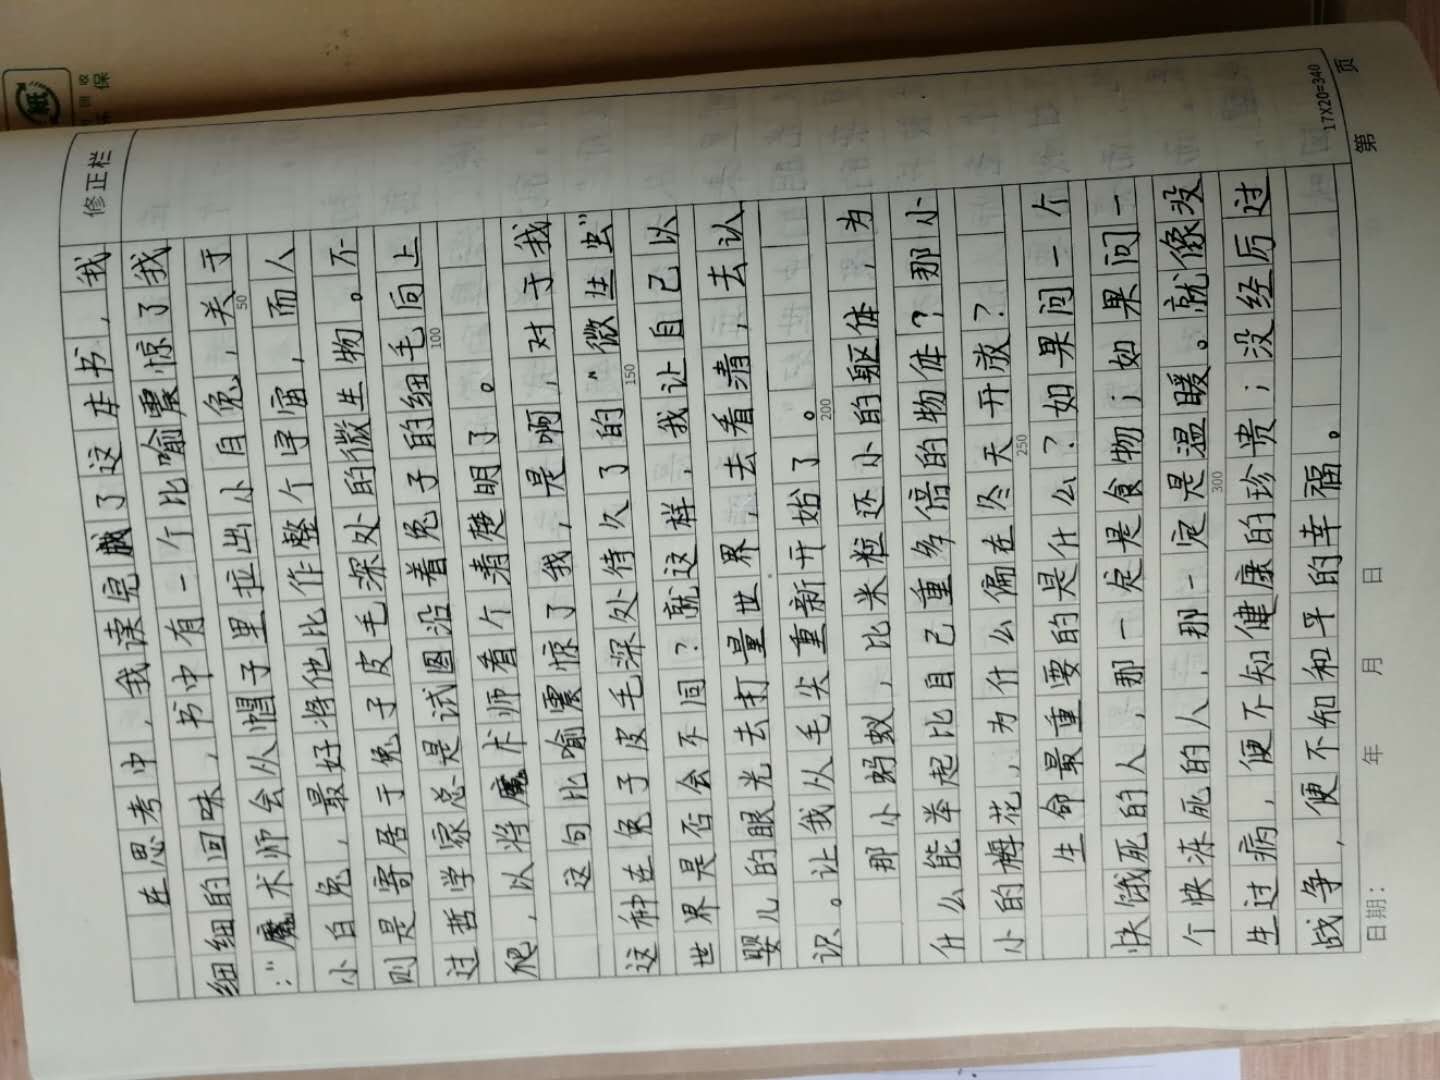 修正栏
在思考中，我读完成了这本书，我
细细的回味，书中有一个比喻震惊了我
：“魔术师会从帽子里拉出小白兔，关于
小白兔，最好将他比作整个宇宙，而人
则是寄居于兔子皮毛深处的微生物。不
过哲学家总是试图沿着兔子的细毛向上
爬，以将魔术师看个清楚明了。
这句比喻震惊了我，是啊，对于我
这种在兔子皮毛深处待久了的“微生虫”
世界是否会不同？就这样，我让自己以
婴儿的眼光去打量世界，去看清，去认
识。让我从毛尖重新开始了。
那小蚂蚁，比米粒还小的躯体，为
什么能举起比自己重多倍的物体？那小
小的梅花，为什么偏在冬天开放？
生命最重要的是什么？如果问一个
快饿死的人，那一定是食物；如果问一
个快冻死的人，那一定是温暖。就像没
生过病，便不知健康的珍贵；没经历过
战争，便不知和平的幸福。
50
100
150
200
250
300
17X20=340
日期： 年 月 日
第 页